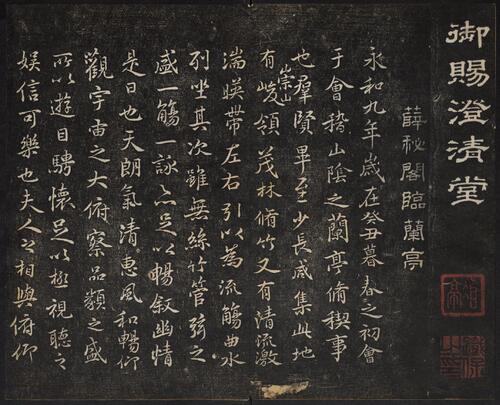 御賜澄清堂
薛秘閣臨蘭亭
永和九年歲在癸丑暮春之初會
于會稽山陰之蘭亭脩稧事
也羣賢畢至少長咸集此地
有崇山峻領茂林脩竹又有清流激
湍暎帶左右引以為流觴曲水
列坐其次雖無絲竹管弦之
盛一觴一詠亦足以暢叙幽情
是日也天朗氣清惠風和暢仰
觀宇宙之大俯察品類之盛
所以遊目騁懷足以極視聽之
娛信可樂也夫人之相與俯仰